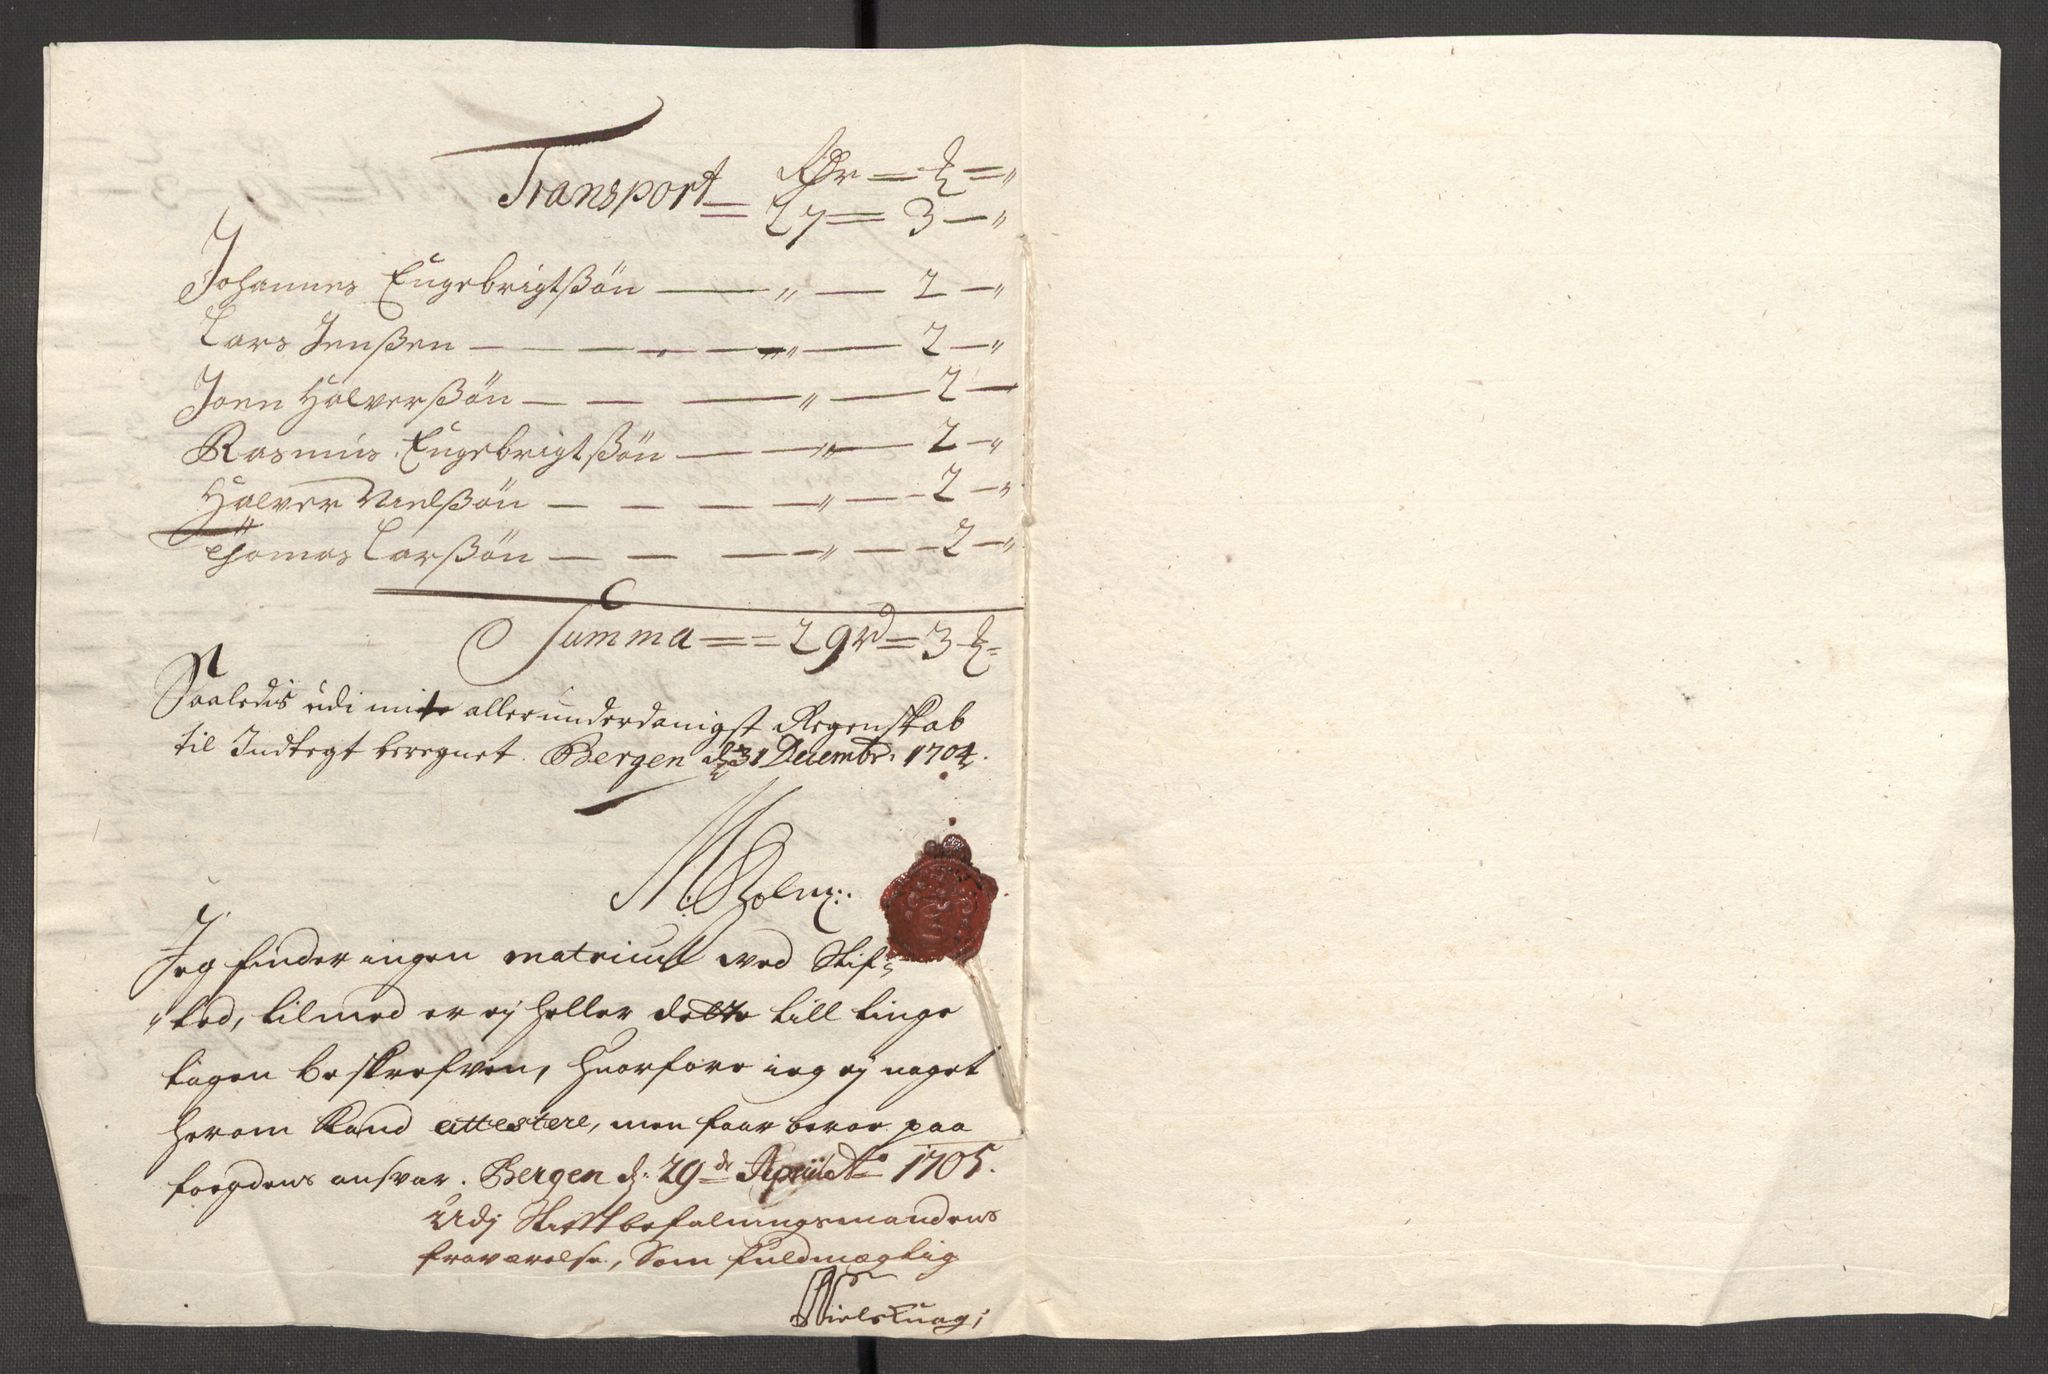 Rdr = ₰ = "
Transport = 27 = 3 - "
Johannes EngebrigtSøn — " — 2 - "
Lars JenSsen — " — 2 - "
Joen HalverSøn — " — 2 -
Rasmus EngebrigtSøn — " — 2 - "
Halver NielSøn — " — 2 - "
Thomas LarSøn — " — 2 - "
Summa = = 29 rd = 3 ₰ =
Saaledis udi mit allerunderdanigst Regenskab
til Indtegt beregnet. Bergen d. 31 Decembr. 1704.
M: Holm:
Jeg finder ingen matricul wed Stif=
"ted, tilmed er ej heller dette till tinge
tagen beskrefven, huorfore ieg ej noget
herom kand attestere, men faar beroe paa
fogdens ansvar. Bergen d: 29de Aprili Ao 1705.
Udj Stiftbefalningsmandens
fraværelse, som fuldmægtig
Niels Knag;